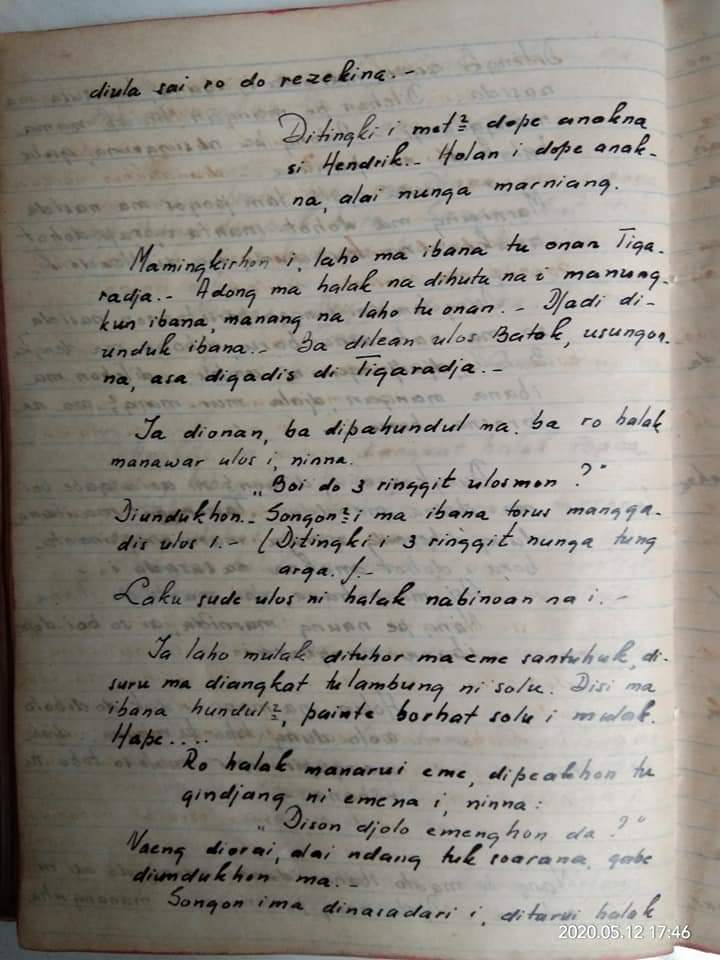 diula sai ro do rezekina.-
Ditingki i met² dope anakna
si Hendrik.- Holan i dope anak-
na, alai nunga marniang.
Mamingkirhon i, laho ma ibana tu onan Tiga-
radja.- Adong ma halak na dihuta na i manung-
kun ibana, manang na laho tu onan.- Djadi di-
unduk ibana.- Ba dilean ulos Batak, usungon-
na, asa digadis di Tigaradja.-
Ia dionan, ba dipahundul ma. ba ro halak
manawar ulos i, ninna.
„Boi do 3 ringgit ulosmon ?"
Diundukhon.- Songon² i ma ibana torus mangga-
dis ulos i.- (Ditingki i 3 ringgit nunga tung
arga.).-
Laku sude ulos ni halak nabinoan na i.-
Ia laho mulak dituhor ma eme santuhuk, di-
suru ma diangkat tu lambung ni solu. Disi ma
ibana hundul², painte borhat solu i mulak.
Hape....
Ro halak manarui eme, dipeakhon tu
gindjang ni emena i, ninna:
„Dison djolo emenghon da ?"
Naeng diorai, alai ndang tuk soarana, gabe
diundukhon ma.-
Songon ima dinasadari i, ditarui halak
2020.05.12 17:46